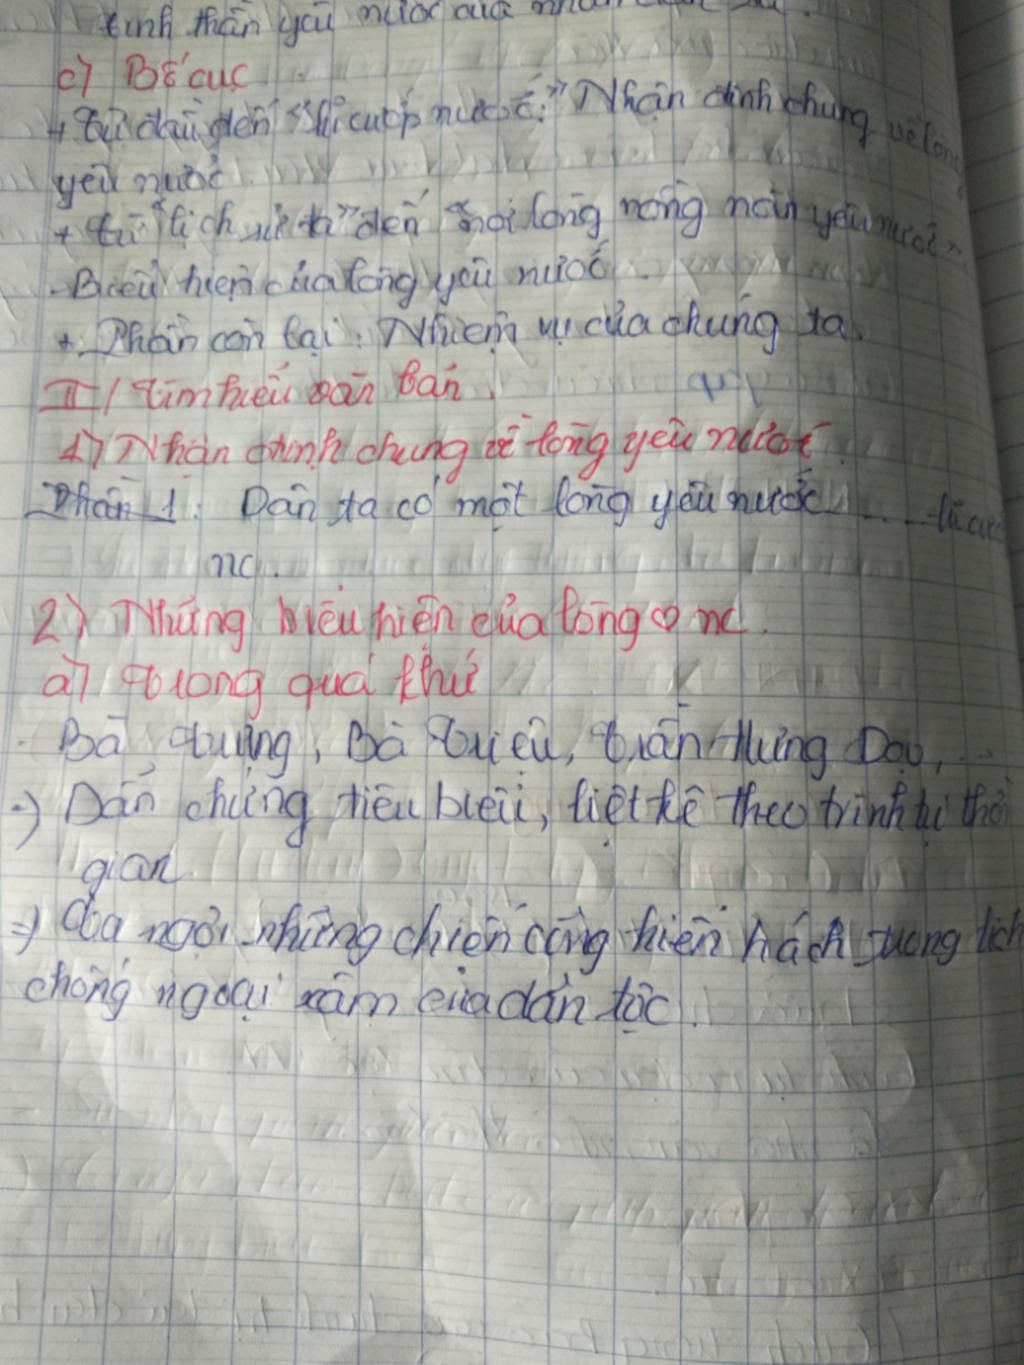 tinh thần yêu nước của nhân dân
c) Bố cục
+ Từ đầu đến "lũ cướp nước": Nhận định chung về lòng
yêu nước
+ từ "lịch sử ta" đến "nơi lòng nồng nàn yêu nước"
Biểu hiện của lòng yêu nước.
+ Phần còn lại: Nhiệm vụ của chúng ta.
II/ tìm hiểu văn bản.
1) Nhận định chung về lòng yêu nước.
Phần 1: Dân ta có một lòng yêu nước ..... lũ cướp
nc.
2) Những biểu hiện của lòng ♡ nc.
a) Trong quá khứ
Bà Trưng, Bà Triệu, Trần Hưng Đạo, ...
=> Dẫn chứng tiêu biểu, liệt kê theo trình tự thời
gian
=> Ca ngợi những chiến công hiển hách trong lịch
chống ngoại xâm của dân tộc.